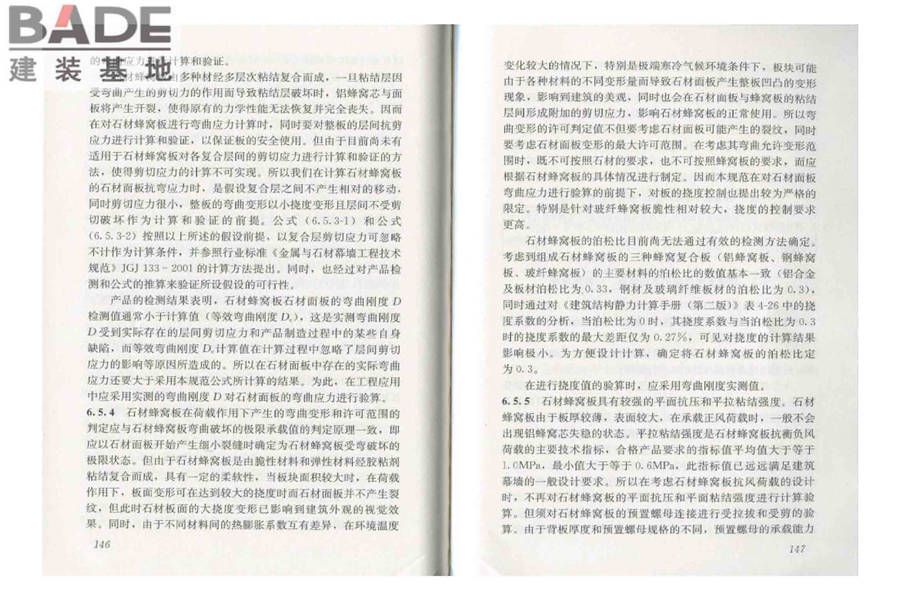 BADE
建筑基地
的弯曲应力计算和验证。
石材蜂窝板由多种材经多层次粘结复合而成，一旦粘结层因
受弯曲产生的剪切力的作用而导致粘结层破坏时，铝蜂窝芯与面
板将产生开裂，使得原有的力学性能无法恢复并完全丧失。因而
在对石材蜂窝板进行弯曲应力计算时，同时要对整板的层间抗剪
应力进行计算和验证，以保证板的安全使用。但由于目前尚未有
适用于石材蜂窝板对各复合层间的剪切应力进行计算和验证的方
法，使得剪切应力的计算不可实现。所以我们在计算石材蜂窝板
的石材面板抗弯应力时，是假设复合层之间不产生相对的移动，
同时剪切应力很小，整板的弯曲变形以小挠度变形且层间不受剪
切破坏作为计算和验证的前提。公式（6.5.3-1）和公式
(6.5.3-2）按照以上所述的假设前提，以复合层剪切应力可忽略
不计作为计算条件，并参照行业标准《金属与石材幕墙工程技术
规范》JGJ 133-2001 的计算方法提出。同时，也经过对产品检
测和公式的推算来验证所设假设的可行性。
产品的检测结果表明，石材蜂窝板石材面板的弯曲刚度 D
检测值通常小于计算值（等效弯曲刚度 Dₑ），这是实测弯曲刚度
D 受到实际存在的层间剪切应力和产品制造过程中的某些自身
缺陷，而等效弯曲刚度 Dₑ 计算值在计算过程中忽略了层间剪切
应力的影响等原因所造成的。所以在石材面板中存在的实际弯曲
应力还要大于采用本规范公式所计算的结果。为此，在工程应用
中应采用实测的弯曲刚度 D 对石材面板的弯曲应力进行验算。
6.5.4 石材蜂窝板在荷载作用下产生的弯曲变形和许可范围的
判定应与石材蜂窝板弯曲破坏的极限承载值的判定原理一致，即
应以石材面板开始产生细小裂缝时确定为石材蜂窝板受弯破坏的
极限状态。但由于石材蜂窝板是由脆性材料和弹性材料经胶粘剂
粘结复合而成，具有一定的柔软性，当板块面积较大时，在荷载
作用下，板面变形可在达到较大的挠度时而石材面板并不产生裂
纹，但此时石材板面的大挠度变形已影响到建筑外观的视觉效
果。同时，由于不同材料间的热膨胀系数互有差异，在环境温度
146
变化较大的情况下，特别是极端寒冷气候环境条件下，板块可能
由于各种材料的不同变形量而导致石材面板产生整板凹凸的变形
现象，影响到建筑的美观，同时也会在石材面板与蜂窝板的粘结
层间形成附加的剪切应力，影响石材蜂窝板的正常使用。所以弯
曲变形的许可判定值不但要考虑石材面板可能产生的裂纹，同时
要考虑石材面板变形的最大许可范围。在考虑其弯曲允许变形范
围时，既不可按照石材的要求，也不可按照蜂窝板的要求，而应
根据石材蜂窝板的具体情况进行制定。因而本规范在对石材面板
弯曲应力进行验算的前提下，对板的挠度控制也提出较为严格的
限定。特别是针对玻纤蜂窝板脆性相对较大，挠度的控制要求
更高。
石材蜂窝板的泊松比目前尚无法通过有效的检测方法确定。
考虑到组成石材蜂窝板的三种蜂窝复合板（铝蜂窝板、钢蜂窝
板、玻纤蜂窝板）的主要材料的泊松比的数值基本一致（铝合金
及板材泊松比为 0.33，钢材及玻璃纤维板材的泊松比为 0.3），
同时通过对《建筑结构静力计算手册（第二版）》表 4-26 中的挠
度系数的分析，当泊松比为 0 时，其挠度系数与当泊松比为 0.3
时的挠度系数的最大差距仅为 0.27%，可见对挠度的计算结果
影响极小。为方便设计计算，确定将石材蜂窝板的泊松比定
为 0.3。
在进行挠度值的验算时，应采用弯曲刚度实测值。
6.5.5 石材蜂窝板具有较强的平面抗压和平拉粘结强度。石材
蜂窝板由于板厚较薄，表面较大，在承载正风荷载时，一般不会
出现铝蜂窝芯失稳的状态。平拉粘结强度是石材蜂窝板抗衡负风
荷载的主要技术指标，合格产品要求的指标值平均值大于等于
1.0MPa，最小值大于等于 0.6MPa，此指标值已远远满足建筑
幕墙的一般设计要求。所以在考虑石材蜂窝板抗风荷载的设计
时，不再对石材蜂窝板的平面抗压和平面粘结强度进行计算验
算。但须对石材蜂窝板的预置螺母连接进行受拉拔和受剪的验
算。由于背板厚度和预置螺母规格的不同，预置螺母的承载能力
147